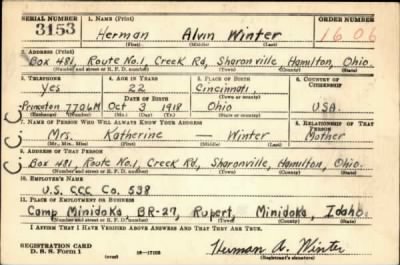 SERIAL NUMBER 1. NAME (Print) ORDER NUMBER
3153 Herman Alvin Winter 1606
(First) (Middle) (Last)
2. ADDRESS (Print)
Box 481, Route No.1, Creek Rd, Sharonville Hamilton, Ohio.
(Number and street or R. F. D. number) (Town) (County) (State)
3. TELEPHONE 4. AGE IN YEARS 5. PLACE OF BIRTH 6. COUNTRY OF CITIZENSHIP
Yes 22 Cincinnati,
DATE OF BIRTH (Town or county)
Princeton 7704M Oct 3 1918 Ohio USA.
(Exchange) (Number) (Mo.) (Day) (Yr.) (State or country)
7. NAME OF PERSON WHO WILL ALWAYS KNOW YOUR ADDRESS 8. RELATIONSHIP OF THAT PERSON
Mrs. Katherine — Winter Mother
(Mr., Mrs., Miss) (First) (Middle) (Last)
9. ADDRESS OF THAT PERSON
Box 481, Route No.1, Creek Rd, Sharonville, Hamilton, Ohio.
(Number and street or R. F. D. number) (Town) (County) (State)
10. EMPLOYER'S NAME
U.S. CCC Co. 538
11. PLACE OF EMPLOYMENT OR BUSINESS
Camp Minidoka BR-27, Rupert, Minidoka, Idaho.
(Number and street or R. F. D. number) (Town) (County) (State)
I AFFIRM THAT I HAVE VERIFIED ABOVE ANSWERS AND THAT THEY ARE TRUE.
REGISTRATION CARD
D. S. S. Form 1 (over) 16—17105 Herman A. Winter
(Registrant's signature)